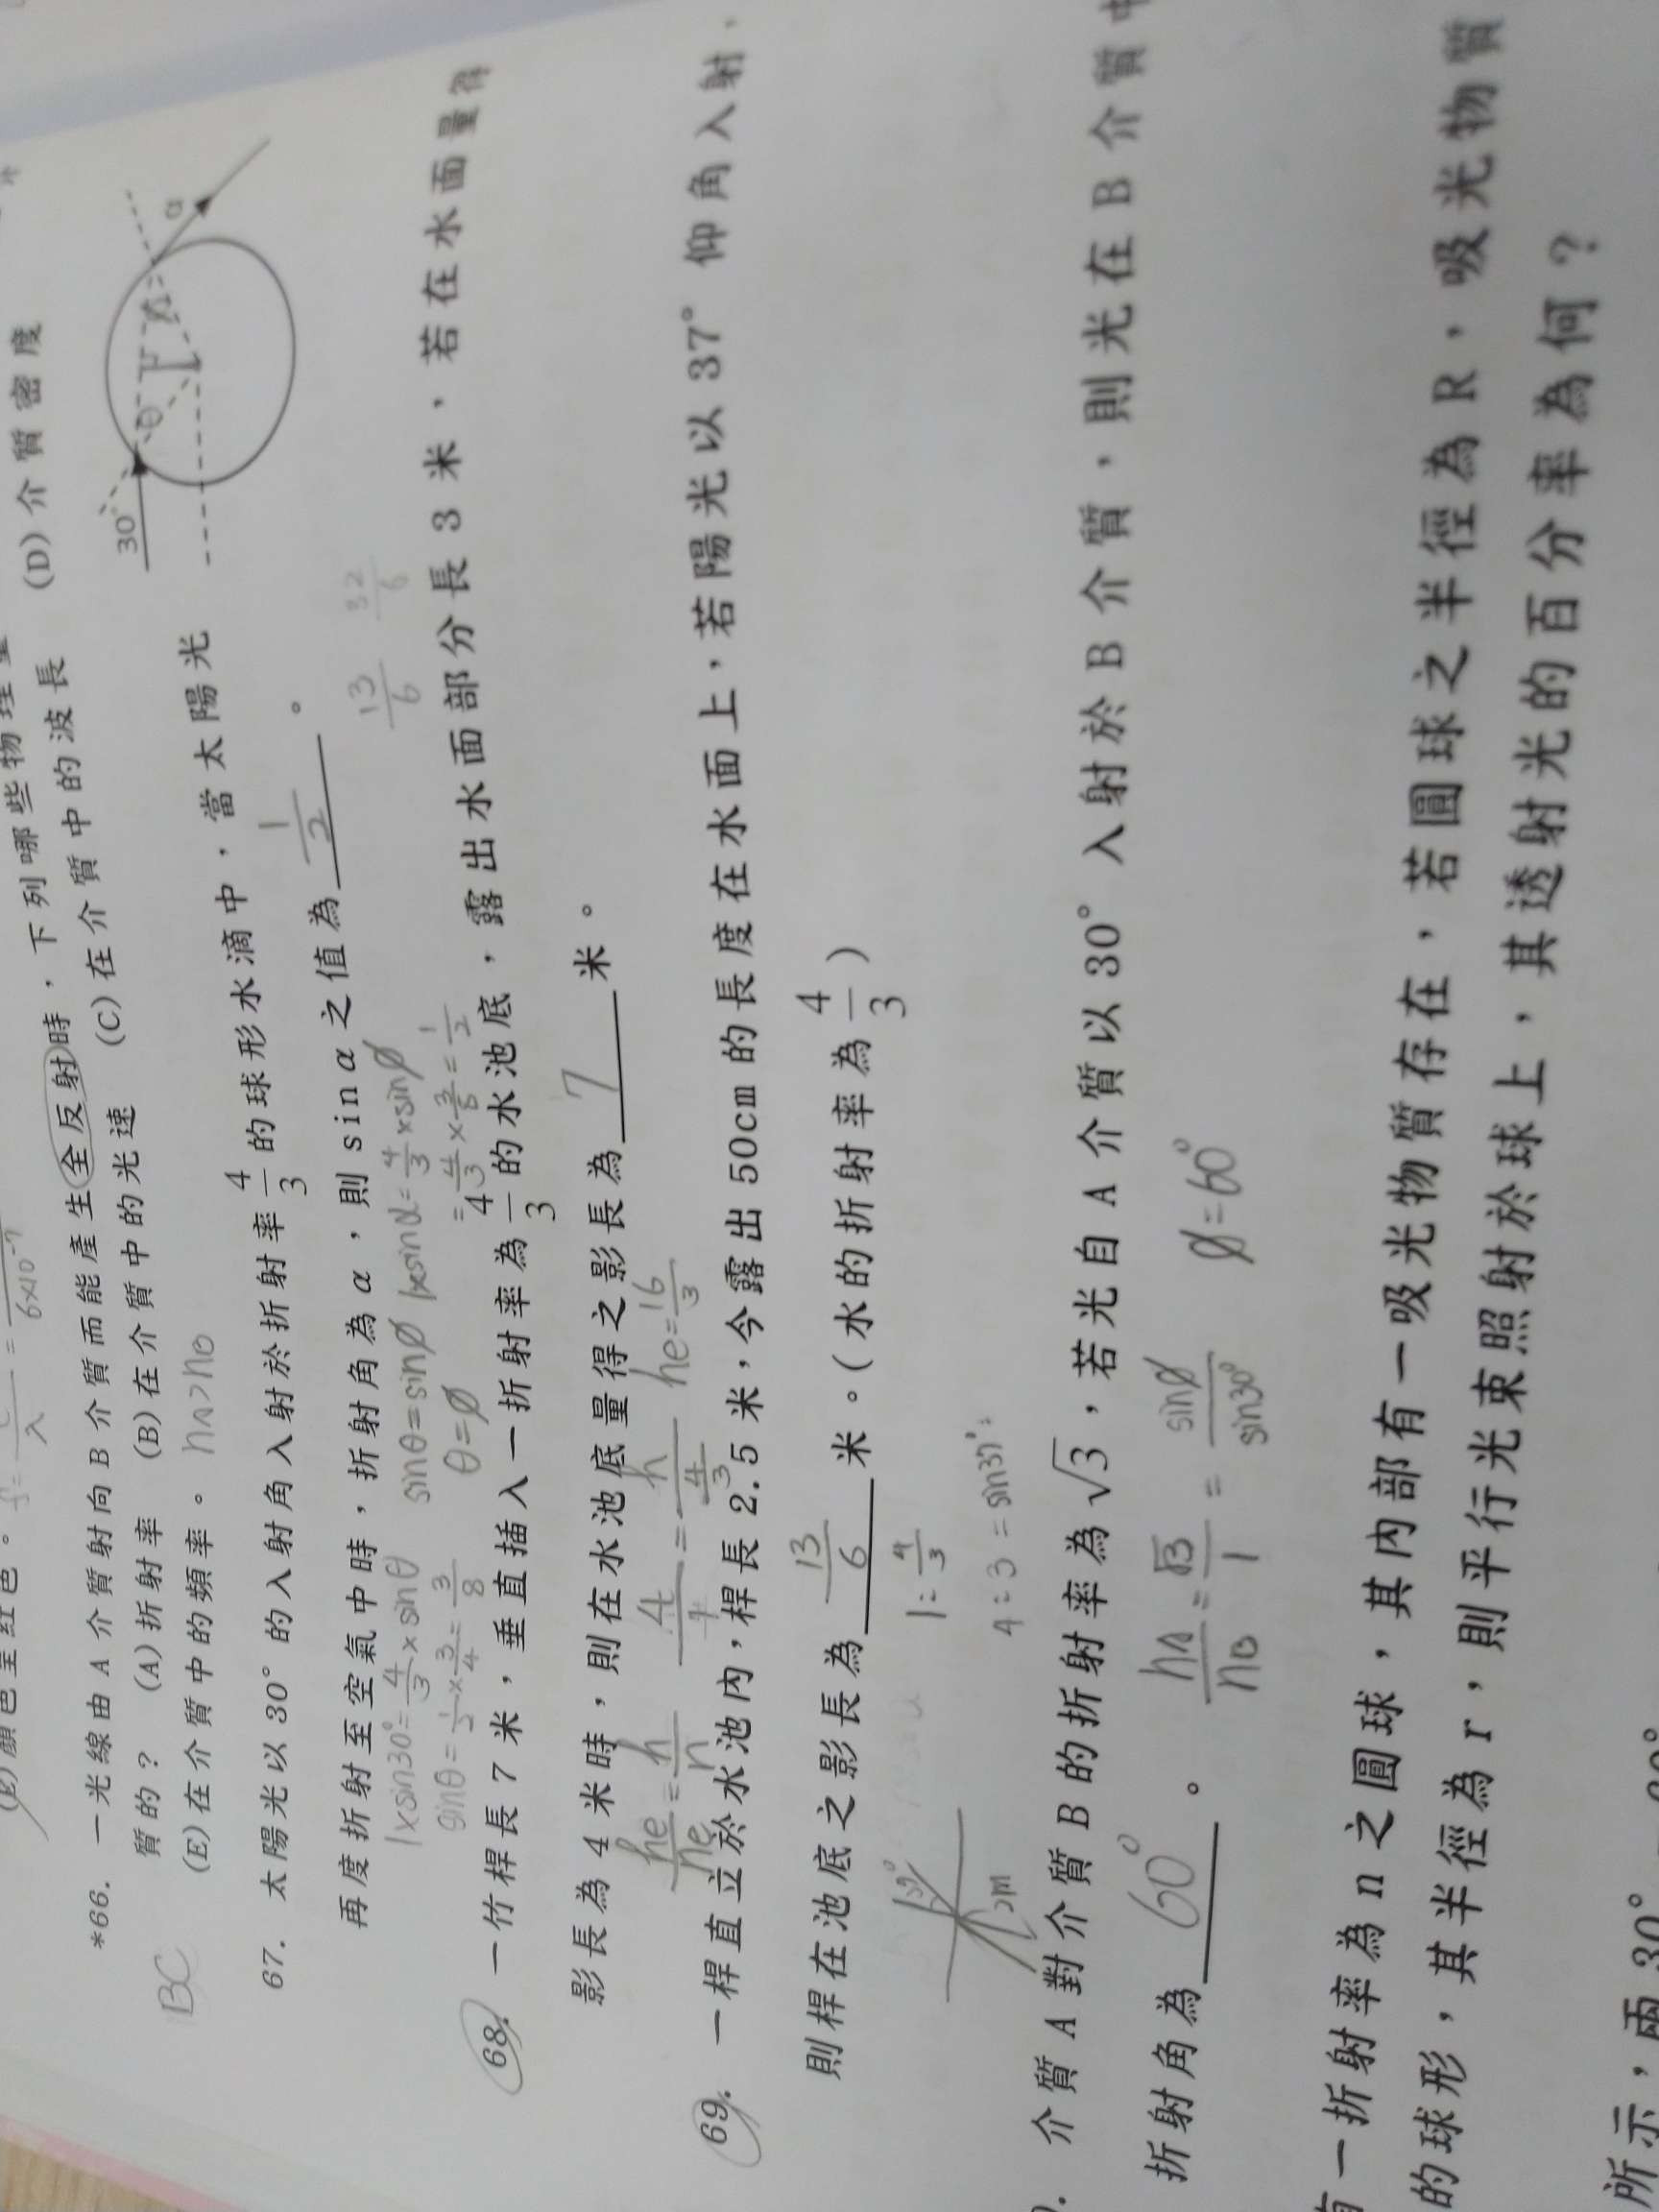 (E)顏色呈紅色。
6×10⁻⁷
*66. 一光線由 A 介質射向 B 介質而能產生全反射時,下列哪些物理量
質的? (A)折射率 (B)在介質中的光速 (C)在介質中的波長 (D)介質密度
(E)在介質中的頻率。 nA>nB
BC
67. 太陽光以 30° 的入射角入射於折射率 4/3 的球形水滴中,當太陽光
再度折射至空氣中時,折射角為 α,則 sinα 之值為 1/2 。
30°
θ
α
1×sin30°=4/3×sinθ
sinθ=1/2×3/4=3/8
sinθ=sinø
θ=ø
1×sinα=4/3×sinø
=4/3×3/8=1/2
13/6
32/6
68. 一竹桿長 7 米,垂直插入一折射率為 4/3 的水池底,露出水面部分長 3 米,若在水面量得
影長為 4 米時,則在水池底量得之影長為 7 米。
he/ne=h/n
4/1=h/(4/3)
he=16/3
69. 一桿直立於水池內,桿長 2.5 米,今露出 50cm 的長度在水面上,若陽光以 37° 仰角入射,
則桿在池底之影長為 13/6 米。(水的折射率為 4/3)
2m
1:4/3
4:3=sin37°:
介質 A 對介質 B 的折射率為 √3,若光自 A 介質以 30° 入射於 B 介質,則光在 B 介質中
折射角為 60° 。
nA/nB=√3/1=sinø/sin30°
ø=60°
有一折射率為 n 之圓球,其內部有一吸光物質存在,若圓球之半徑為 R,吸光物質
的球形,其半徑為 r,則平行光束照射於球上,其透射光的百分率為何?
所示,兩 30°